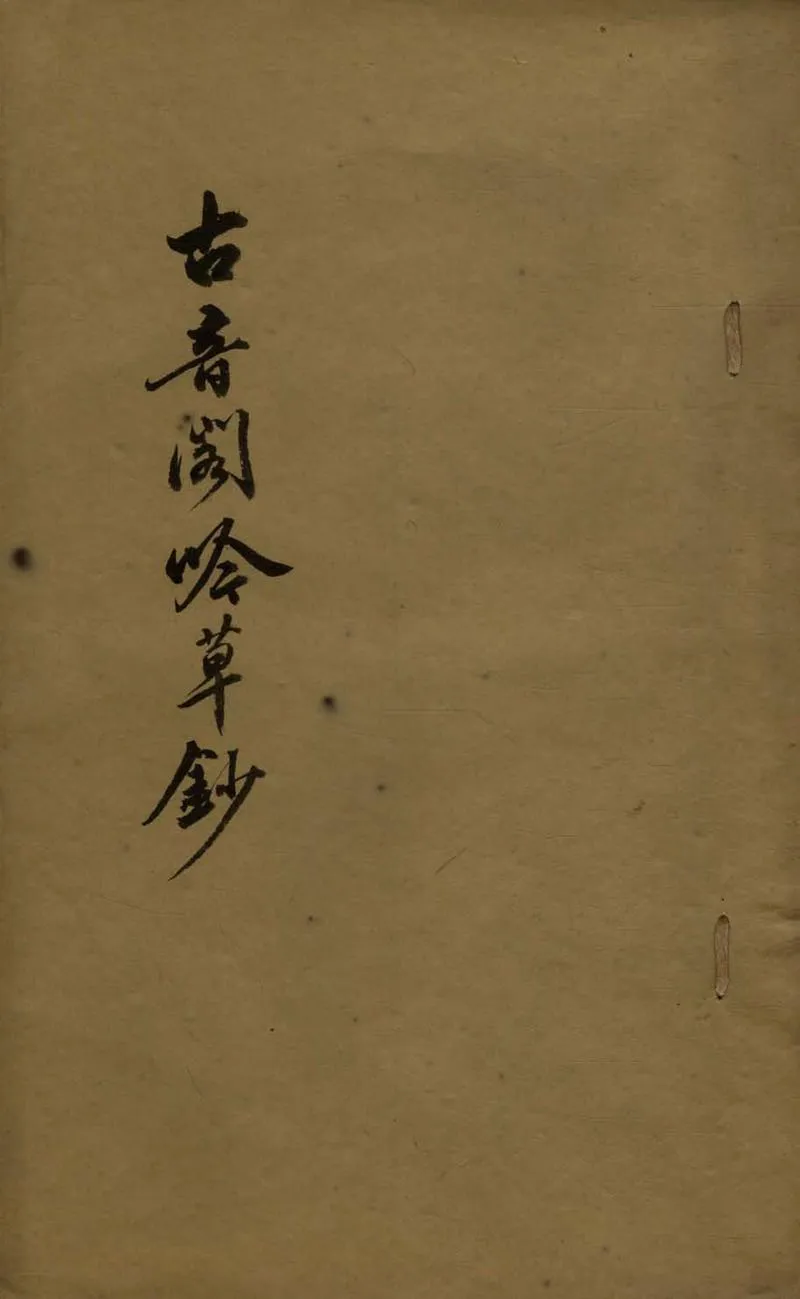 古音閣吟草鈔